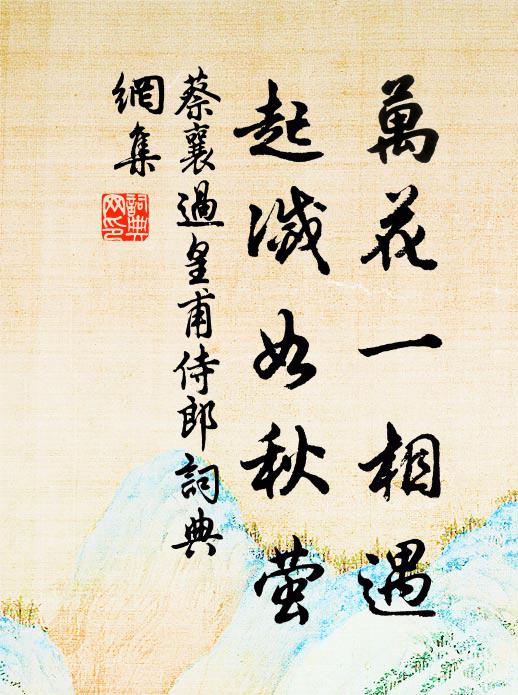 萬花一相遇
起滅如秋螢
蔡襄過皇甫侍郎詞典
網集
詞典
网印